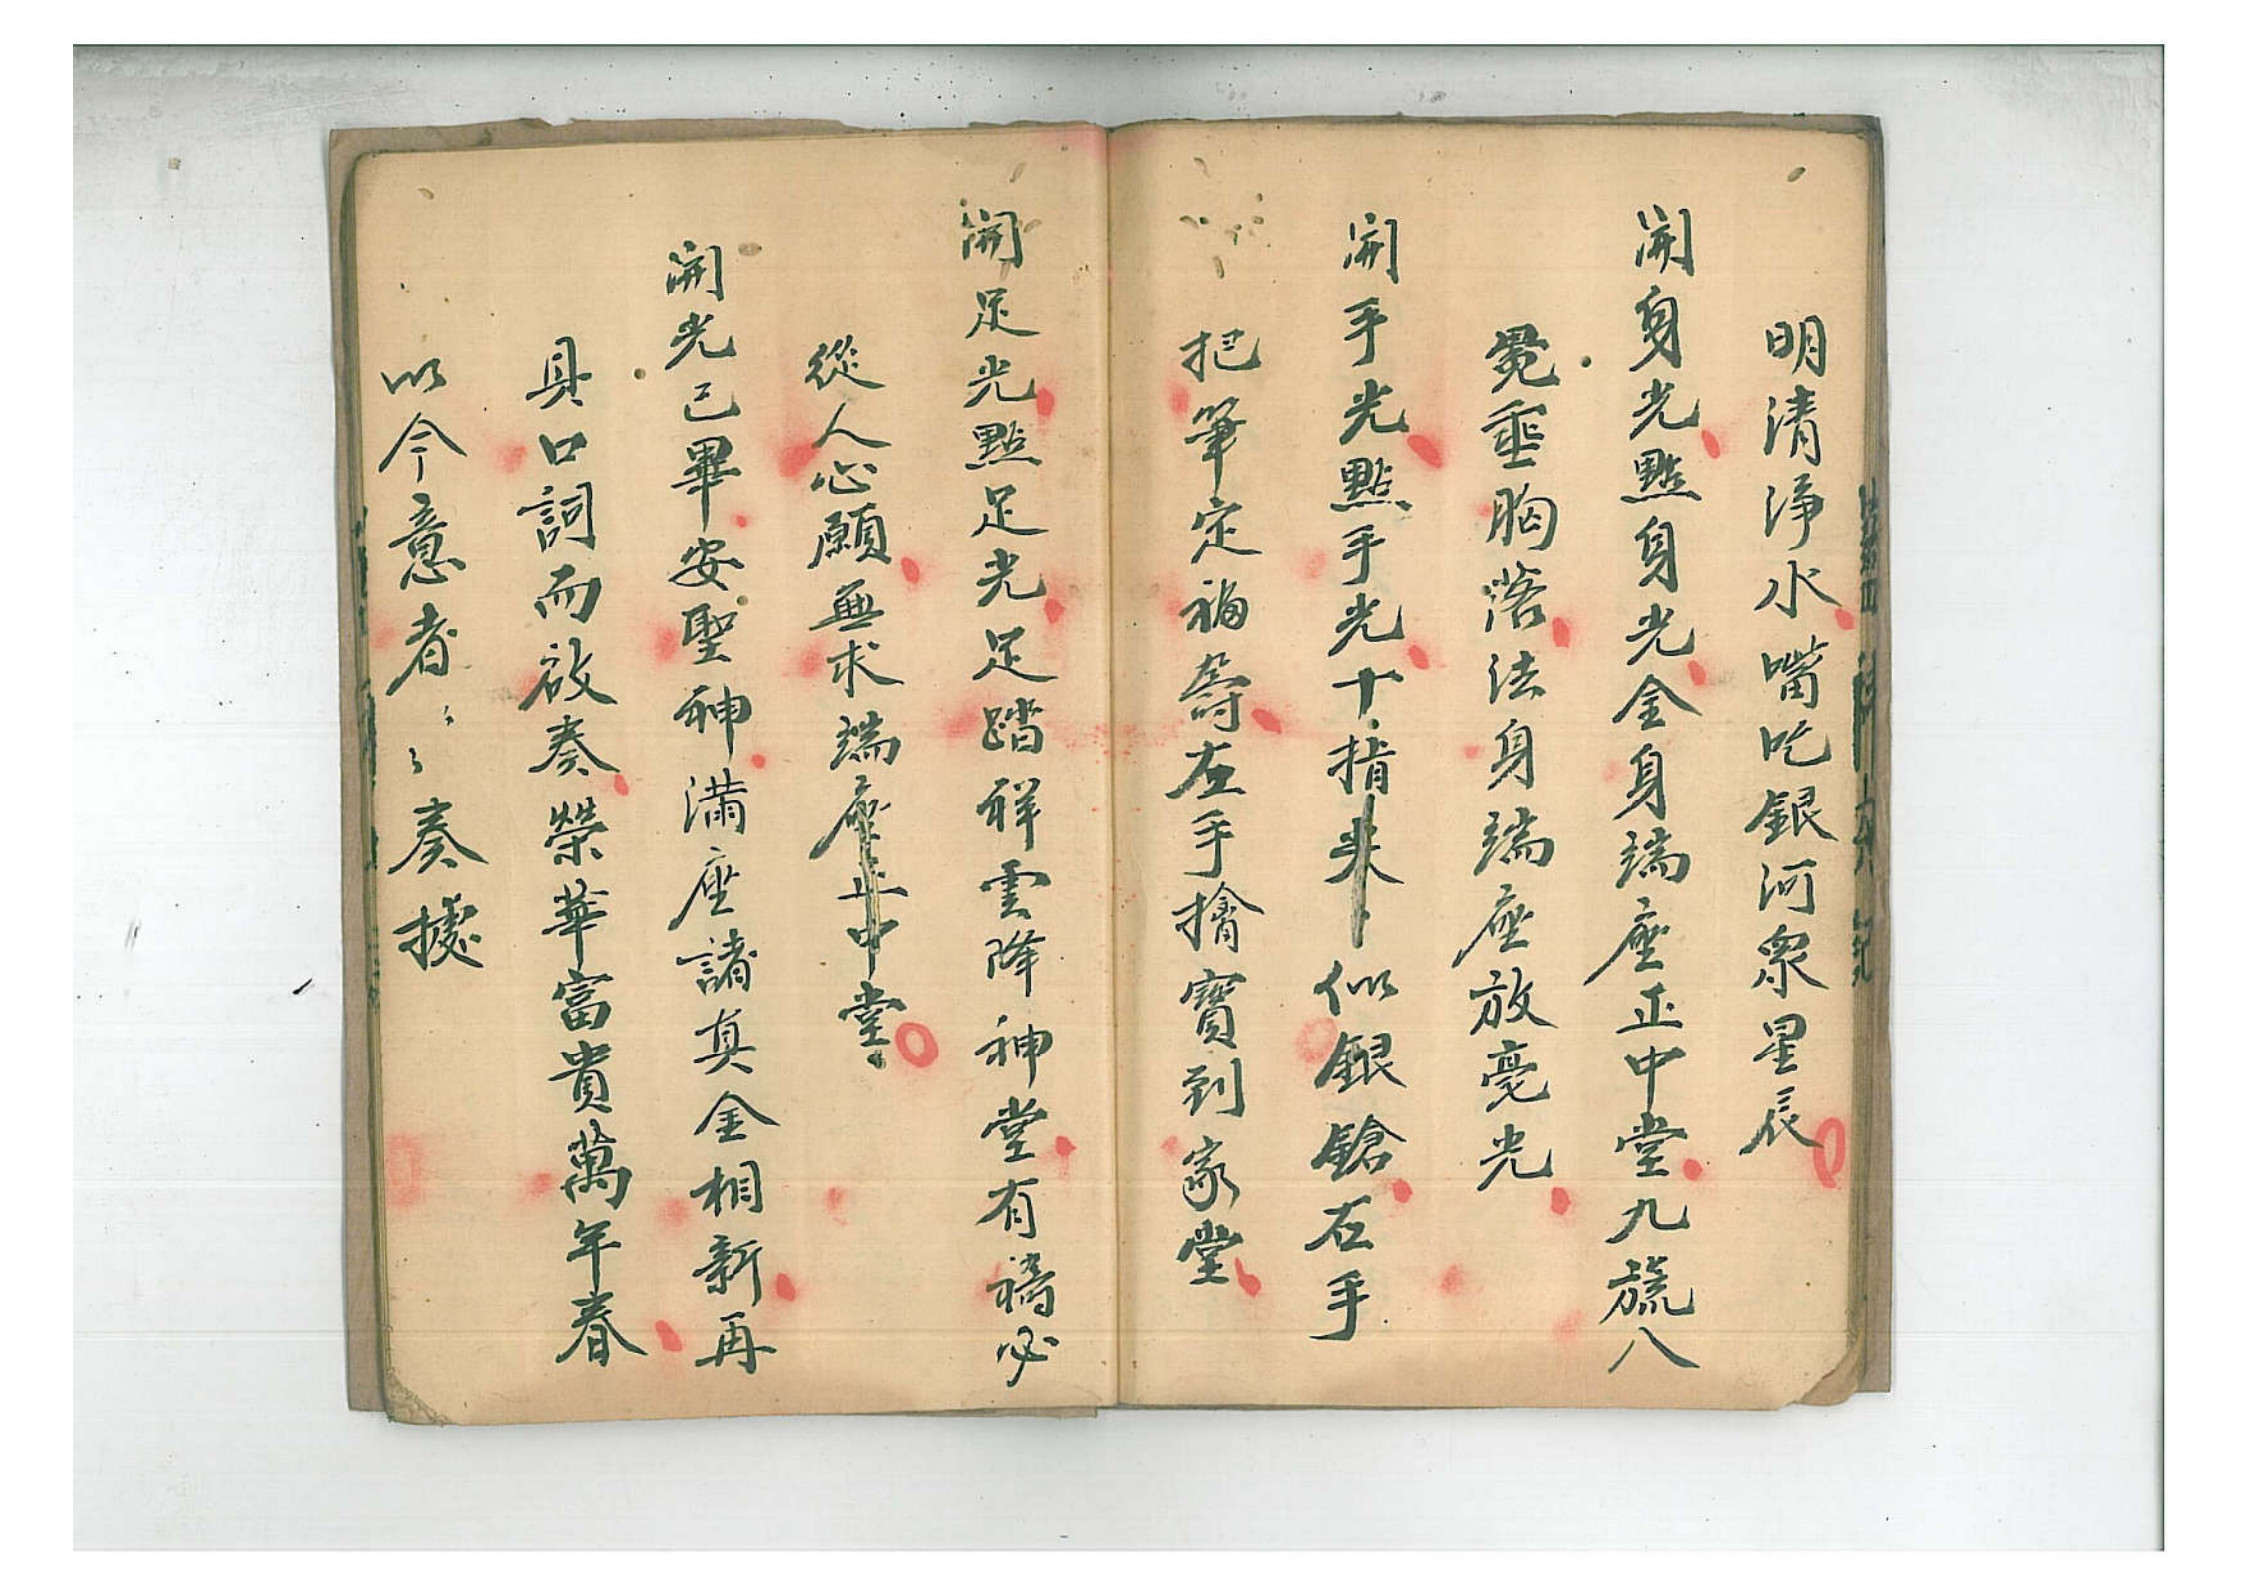 明清淨水嘴吃銀河衆星辰
開身光點身光金身端座正中堂九旒八
冕垂胸落法身端座放亳光
開手光點手光十指尖尖似銀鎗右手
把筆定福壽左手擒寶到家堂
開足光點足光足踏祥雲降神堂有禱必
從人心願無求端座正中堂
開光已畢安聖神滿座諸真金相新再
具口詞而啟奏榮華富貴萬年春
以今意者〻〻奏據